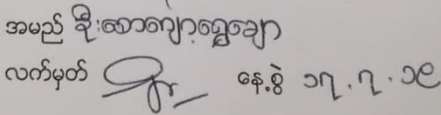 အမည် ဦးစောကျော့ရွှေချော
လက်မှတ် နေ့စွဲ ၁၇.၇.၁၉